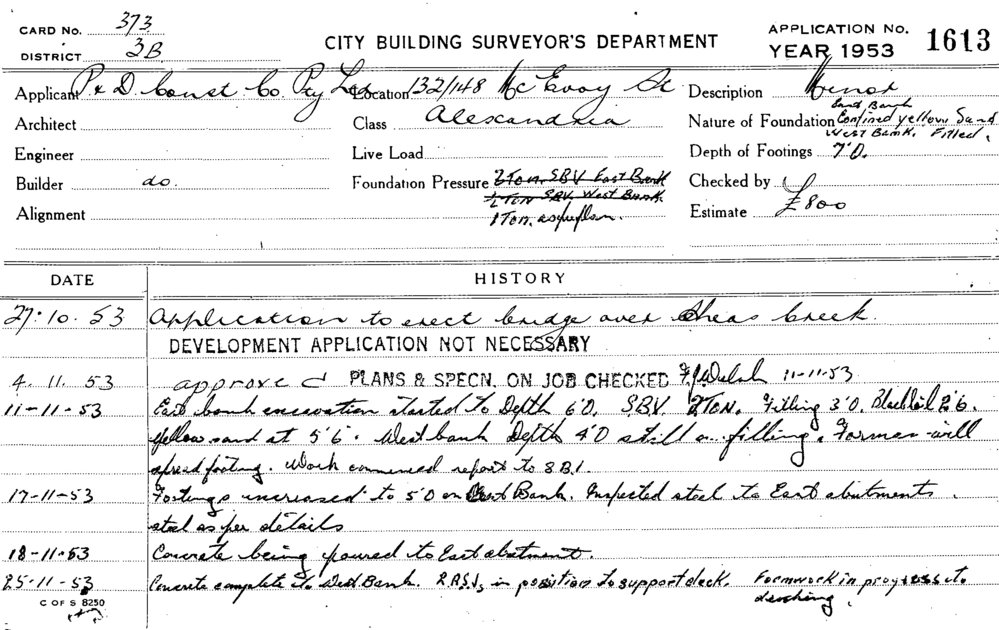 CARD NO. 373
DISTRICT 3B
CITY BUILDING SURVEYOR'S DEPARTMENT
APPLICATION NO.
YEAR 1953
1613
Applicant P & D Const Co. Pty Ltd Location 132/148 McEvoy St Description Minor
Architect Class Alexandria Nature of Foundation East Bank Confined yellow Sand West Bank. Filled.
Engineer Live Load Depth of Footings 7'0.
Builder do. Foundation Pressure 2 TON. SBV East Bank Checked by
½ TON SBV. West Bank.
Alignment 1 TON. as per plan. Estimate £800
DATE HISTORY
27.10.53 Application to erect bridge over Sheas Creek.
DEVELOPMENT APPLICATION NOT NECESSARY
4.11.53 approved PLANS & SPECN. ON JOB CHECKED F.J. Welsh 11-11-53
11-11-53 East bank excavation started to Depth 6'0. SBV 2 TON. Filling 3'0. Black soil 2'6.
yellow sand at 5'6". West bank Depth 4'0 still in filling. Foreman will
spread footing. Work commenced report to SBI.
17-11-53 Footings increased to 5'0 on West Bank. Inspected steel to East abutments.
steel as per details
18-11-53 Concrete being poured to East abutment.
25-11-53 Concrete complete to West Bank. R.S.Js in position to support deck. Formwork in progress to
decking.
C OF S 8250